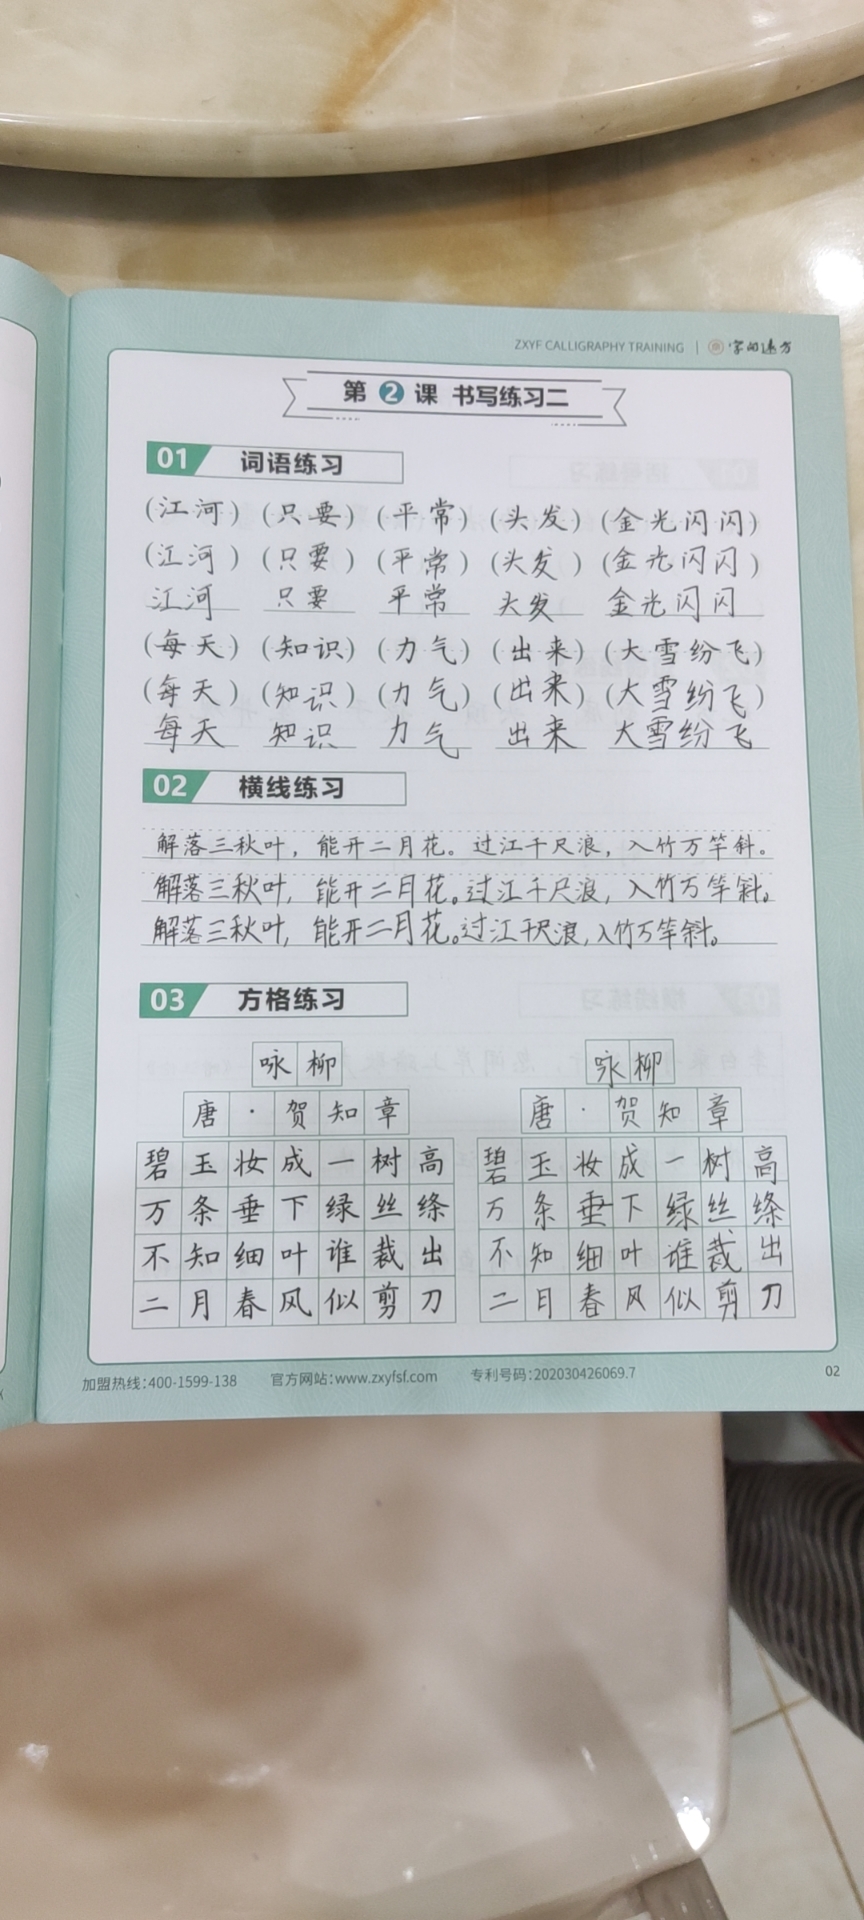 ZXYF CALLIGRAPHY TRAINING | 字的远方
第2课 书写练习二
01 词语练习
(江河) (只要) (平常) (头发) (金光闪闪)
(江河) (只要) (平常) (头发) (金光闪闪)
江河 只要 平常 头发 金光闪闪
(每天) (知识) (力气) (出来) (大雪纷飞)
(每天) (知识) (力气) (出来) (大雪纷飞)
每天 知识 力气 出来 大雪纷飞
02 横线练习
解落三秋叶，能开二月花。过江千尺浪，入竹万竿斜。
解落三秋叶，能开二月花。过江千尺浪，入竹万竿斜。
解落三秋叶，能开二月花。过江千尺浪，入竹万竿斜。
03 方格练习
咏柳
唐·贺知章
碧玉妆成一树高
万条垂下绿丝绦
不知细叶谁裁出
二月春风似剪刀
咏柳
唐·贺知章
碧玉妆成一树高
万条垂下绿丝绦
不知细叶谁裁出
二月春风似剪刀
加盟热线:400-1599-138 官方网站:www.zxyfsf.com 专利号码:202030426069.7 02